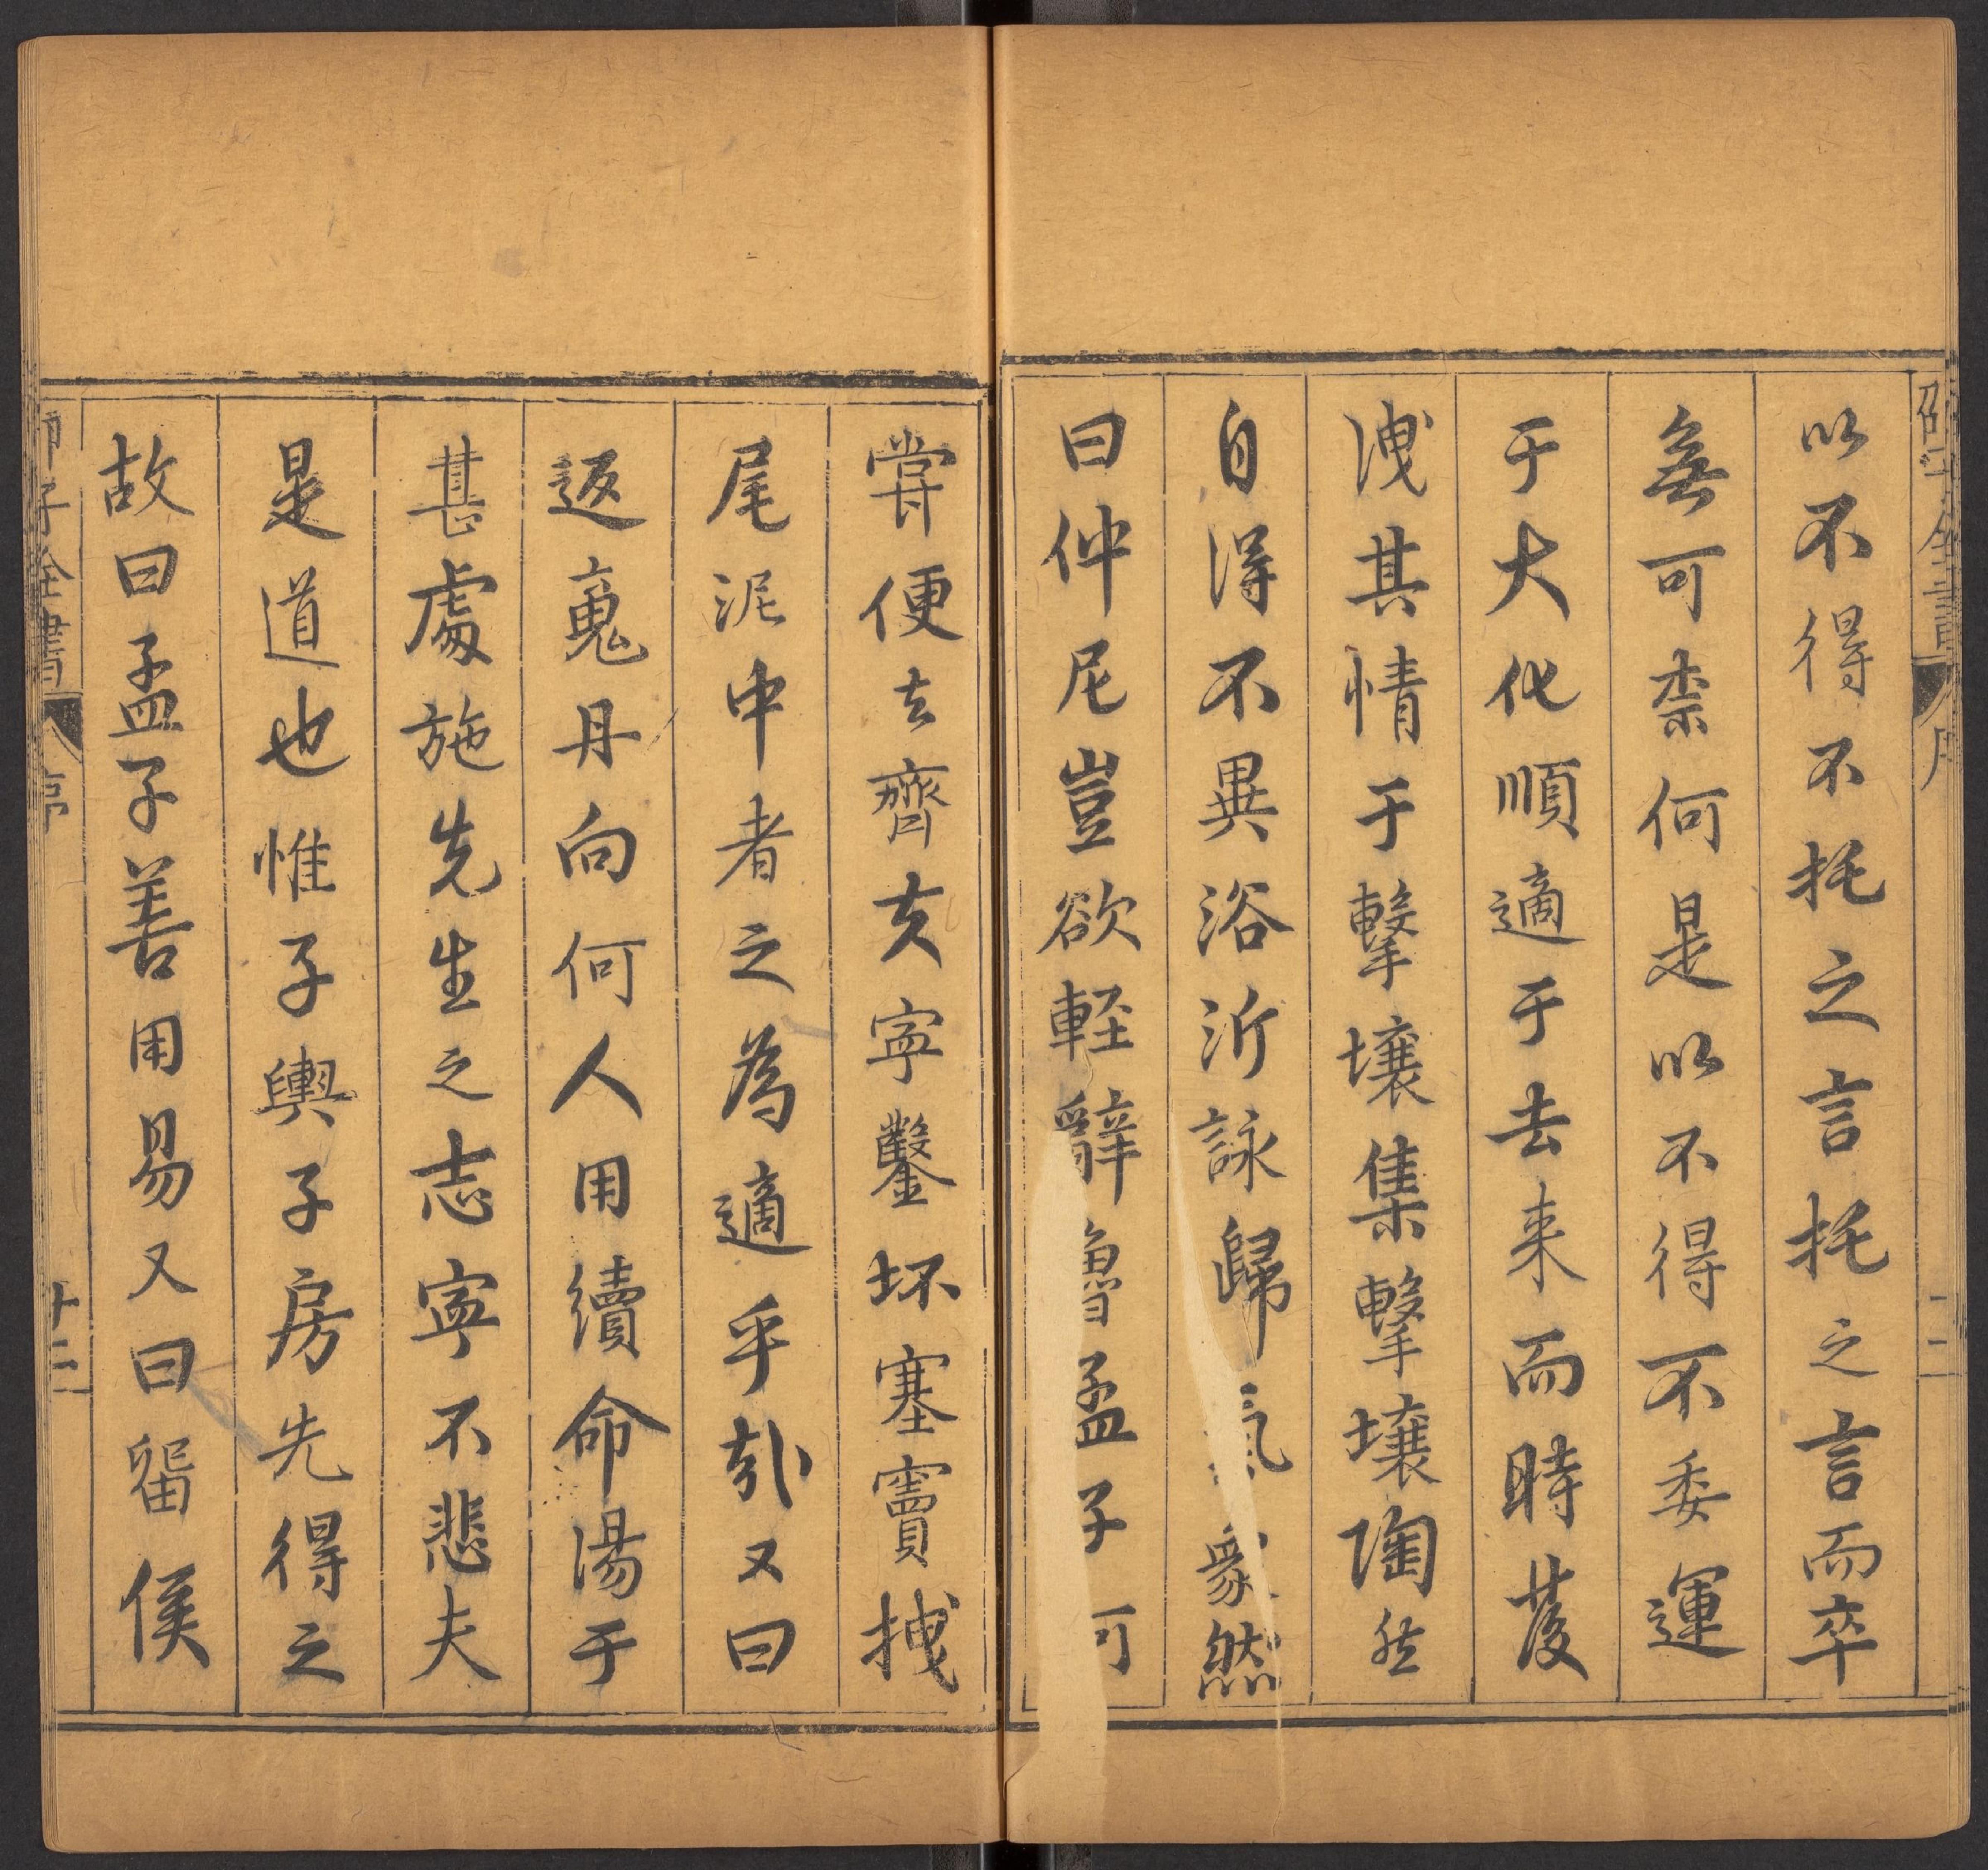 以不得不托之言托之言而卒
無可柰何是以不得不委運
于大化順適于去来而時發
洩其情于擊壤集擊壤陶然
自得不異浴沂詠歸氣象然
曰仲尼豈欲軽辭魯孟子何
甞便去齊亥寧鑿坏塞竇拽
尾泥中者之為適乎哉又曰
返魂丹向何人用續命湯于
甚處施先生之志寧不悲夫
是道也惟子輿子房先得之
故曰孟子善用易又曰畱侯
邵子全書
序
十二